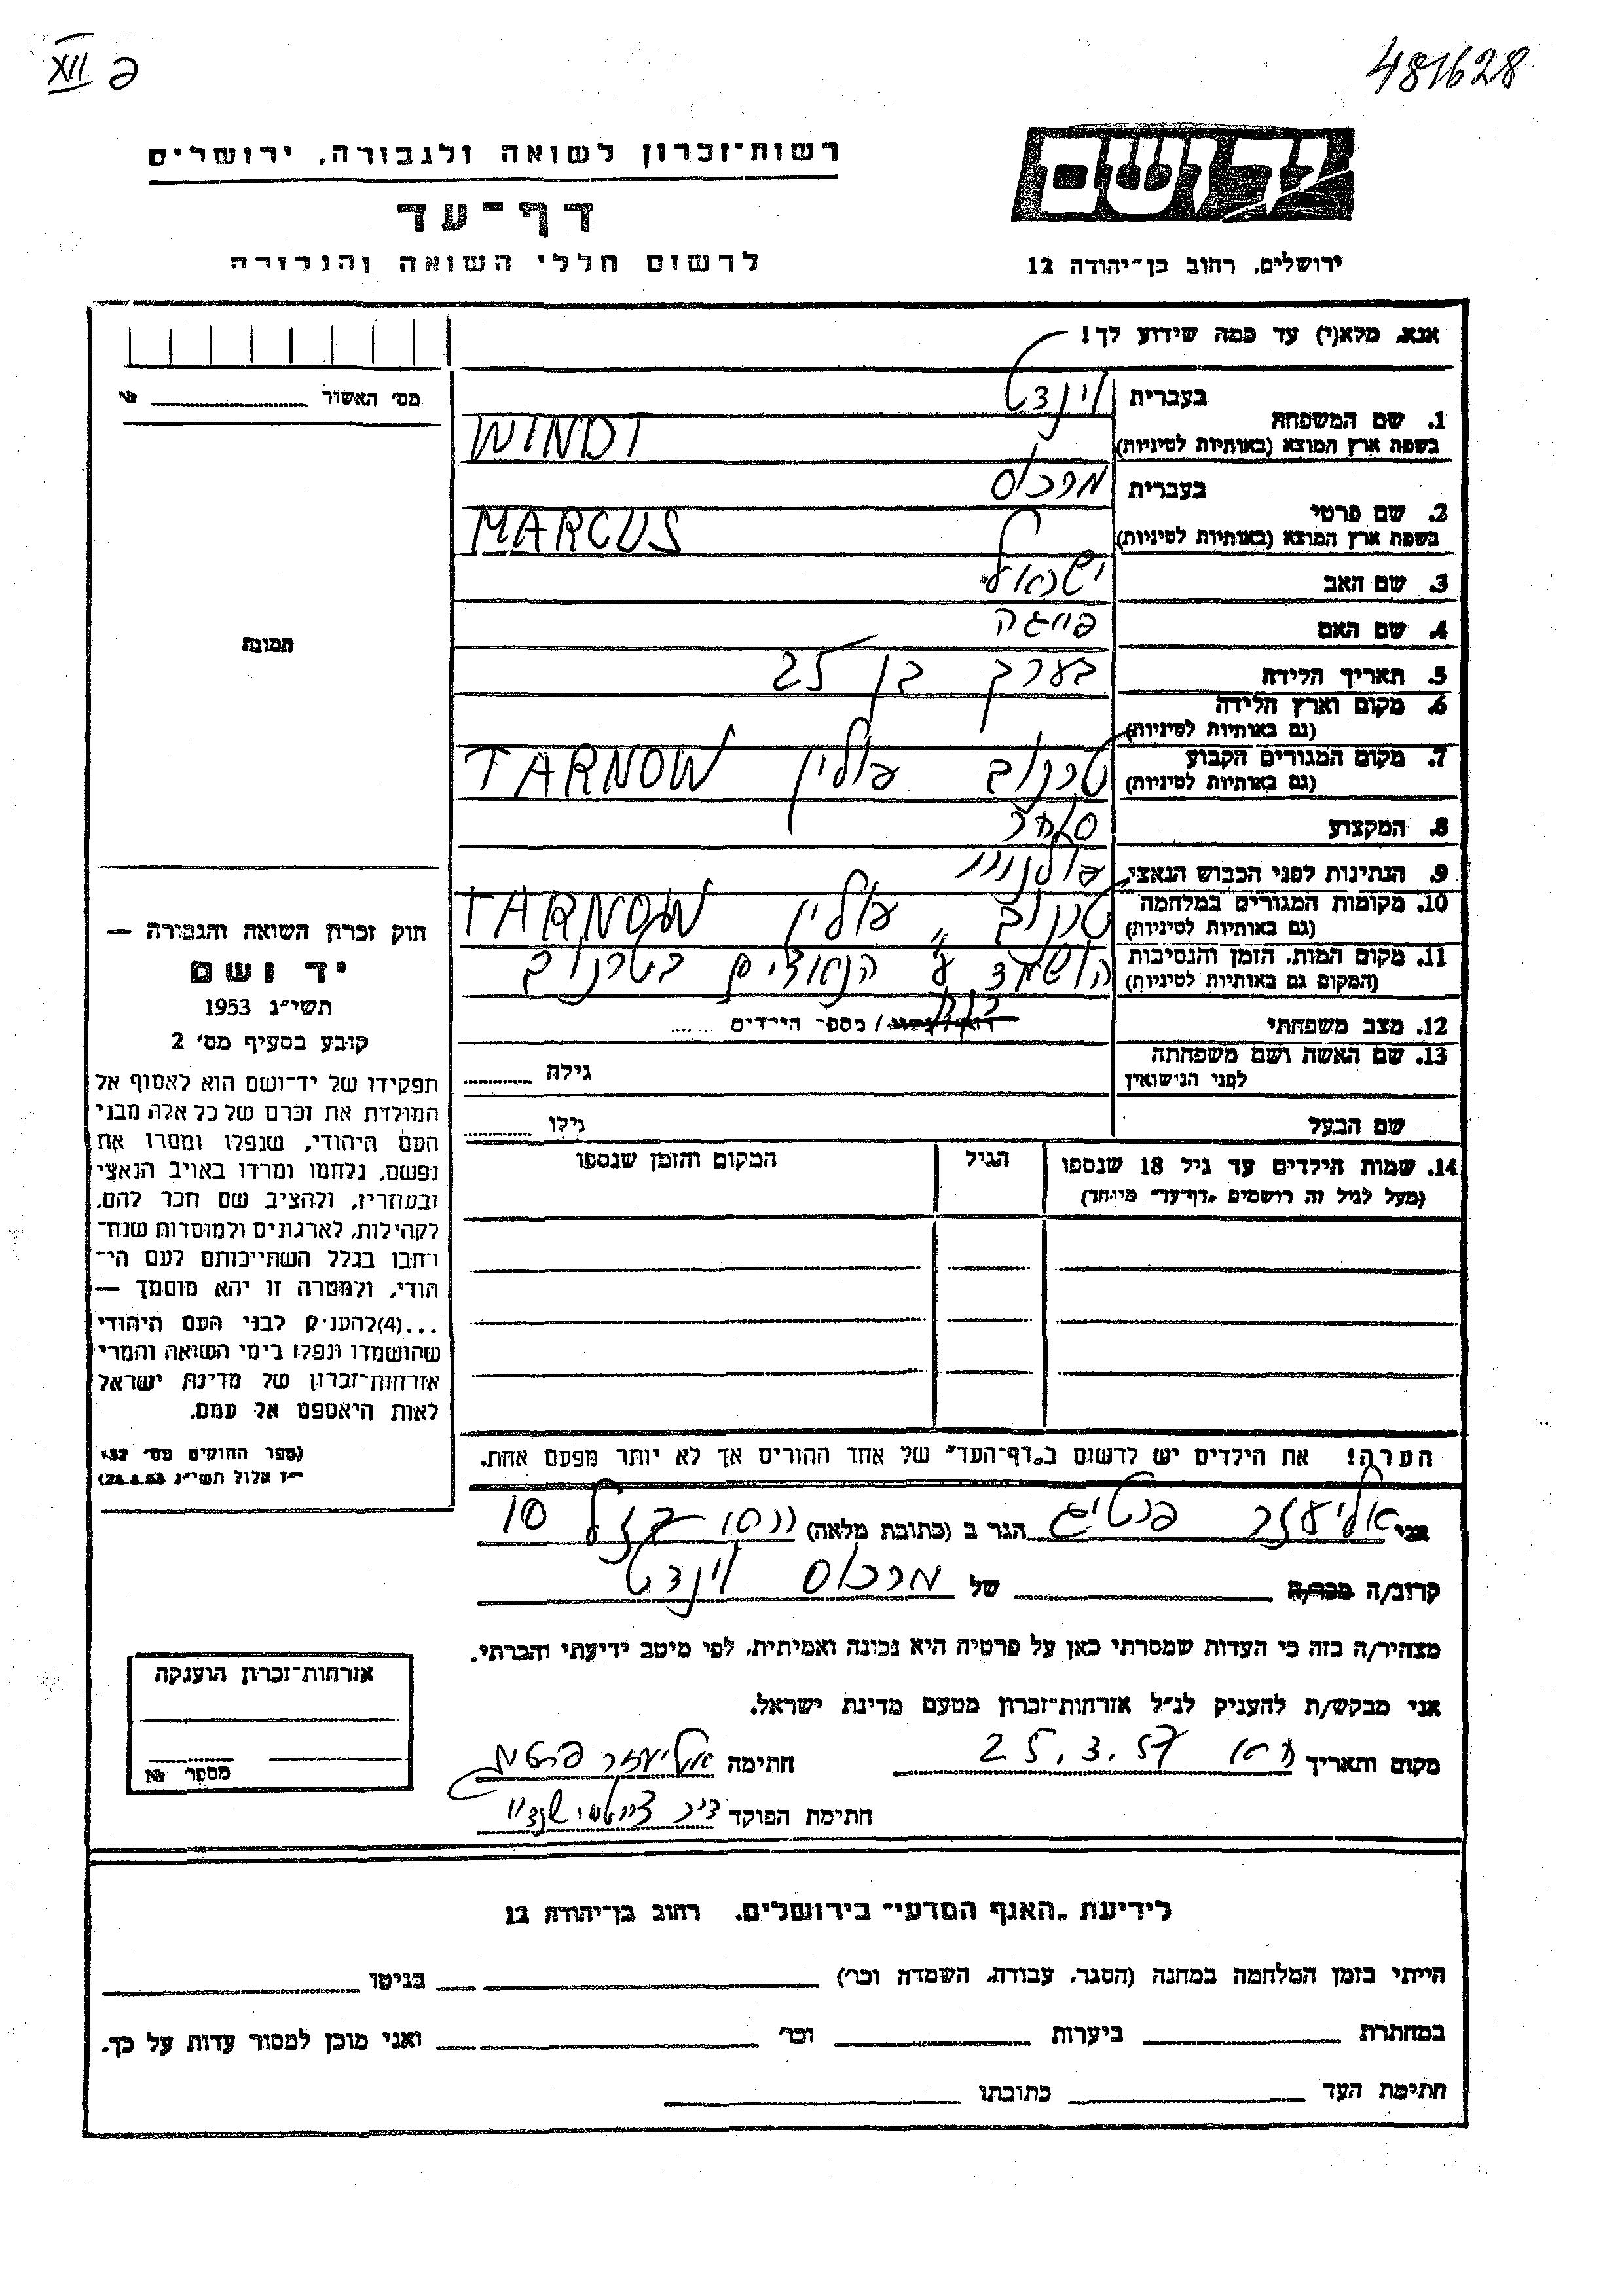 XII פ
481628
יד ושם
רשות־זכרון לשואה ולגבורה, ירושלים
דף־עד
לרשום חללי השואה והגבורה
ירושלים, רחוב בן־יהודה 12
אנא, מלא(י) עד כמה שידוע לך!
מס׳ האשור
1. שם המשפחה בעברית וינדט
בשפת ארץ המוצא (באותיות לטיניות) WINDT
2. שם פרטי בעברית מרכוס
בשפת ארץ המוצא (באותיות לטיניות) MARCUS
3. שם האב ישראל
4. שם האם פייגה
5. תאריך הלידה בערך בן 25
6. מקום וארץ הלידה
(גם באותיות לטיניות)
7. מקום המגורים הקבוע טרנוב פולין TARNOW
(גם באותיות לטיניות)
8. המקצוע סוחר
9. הנתינות לפני הכבוש הנאצי פולנית
10. מקומות המגורים במלחמה טרנוב פולין TARNOW
(גם באותיות לטיניות)
11. מקום המות, הזמן והנסיבות הושמד ע"י הנאצים בטרנוב
(המקום גם באותיות לטיניות)
12. מצב משפחתי רווק / מספר הילדים
13. שם האשה ושם משפחתה
לפני הנישואין גילה
שם הבעל גילו
14. שמות הילדים עד גיל 18 שנספו הגיל המקום והזמן שנספו
(מעל לגיל זה רושמים „דף־עד״ מיוחד)
הערה! את הילדים יש לרשום ב„דף־העד״ של אחד ההורים אך לא יותר מפעם אחת.
תמונה
חוק זכרון השואה והגבורה —
יד ושם
תשי״ג 1953
קובע בסעיף מס׳ 2
תפקידו של יד־ושם הוא לאסוף אל
המולדת את זכרם של כל אלה מבני
העם היהודי, שנפלו ומסרו את
נפשם, נלחמו ומרדו באויב הנאצי
ובעוזריו, ולהציב שם וזכר להם,
לקהילות, לארגונים ולמוסדות שנח־
רבו בגלל השתייכותם לעם הי־
הודי, ולמטרה זו יהא מוסמך —
...(4) להעניק לבני העם היהודי
שהושמדו ונפלו בימי השואה והמרי
אזרחות־זכרון של מדינת ישראל
לאות היאספם אל עמם.
(ספר החוקים מס׳ 132
י״ז אלול תשי״ג 28.8.53)
אני אליעזר פרטיג הגר ב (כתובת מלאה) 10
קרוב/ה מכר/ה של מרכוס וינדט
מצהיר/ה בזה כי העדות שמסרתי כאן על פרטיה היא נכונה ואמיתית, לפי מיטב ידיעתי והכרתי.
אני מבקש/ת להעניק לנ״ל אזרחות־זכרון מטעם מדינת ישראל.
מקום ותאריך 25.3.57 חתימה אליעזר פרטיג
חתימת הפוקד
אזרחות־זכרון הוענקה
מספר №
לידיעת „האגף המדעי״ בירושלים, רחוב בן־יהודה 12
הייתי בזמן המלחמה במחנה (הסגר, עבודה, השמדה וכו׳) בגיטו
במחתרת ביערות וכו׳ ואני מוכן למסור עדות על כך.
חתימת העד כתובתו